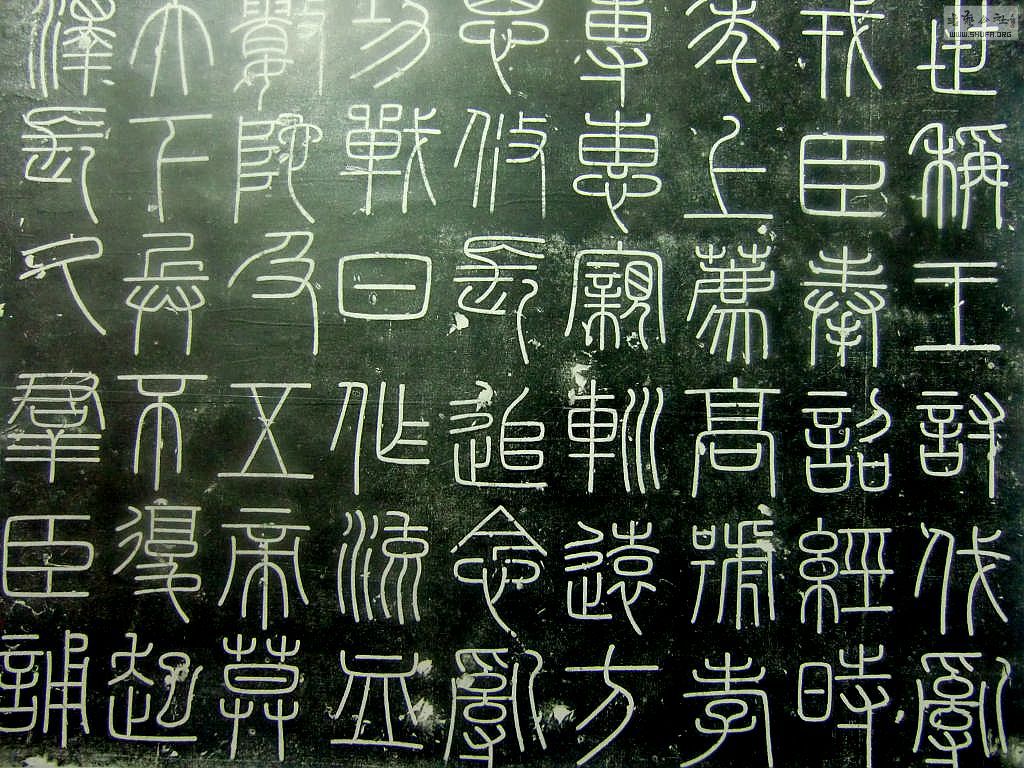 世稱王討伐亂
戎臣奉詔經時
年上薦高號孝
專惠寴䡅遠方
思攸長追念亂
功戰日作流血
數陀及五帝莫
天下兵不復起
澤長久群臣誦
WWW.SHUFA.ORG